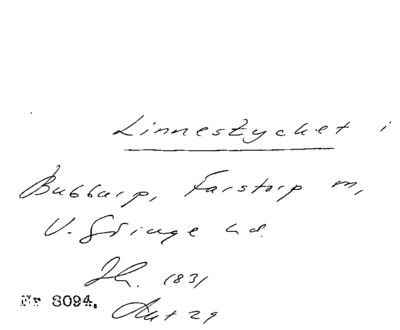 Linnestycket i
Bubbarp, Farstorp m,
V. Göinge hd.
Jh. 1831
Nr 8094. Akt 29